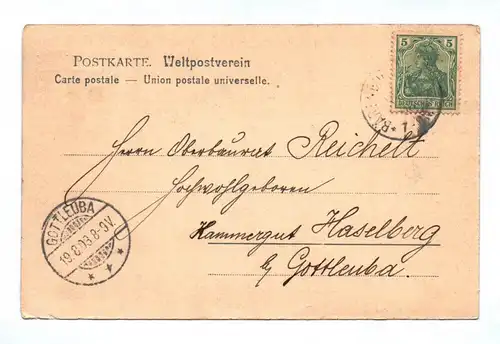 POSTKARTE. Weltpostverein
Carte postale — Union postale universelle.
5 5
DEUTSCHES REICH
Herrn Oberbaurat Reichelt
Hochwohlgeboren
Hammergut Haselberg
b/ Gottleuba.
GOTTLEUBA
19.8.03.8-9V.